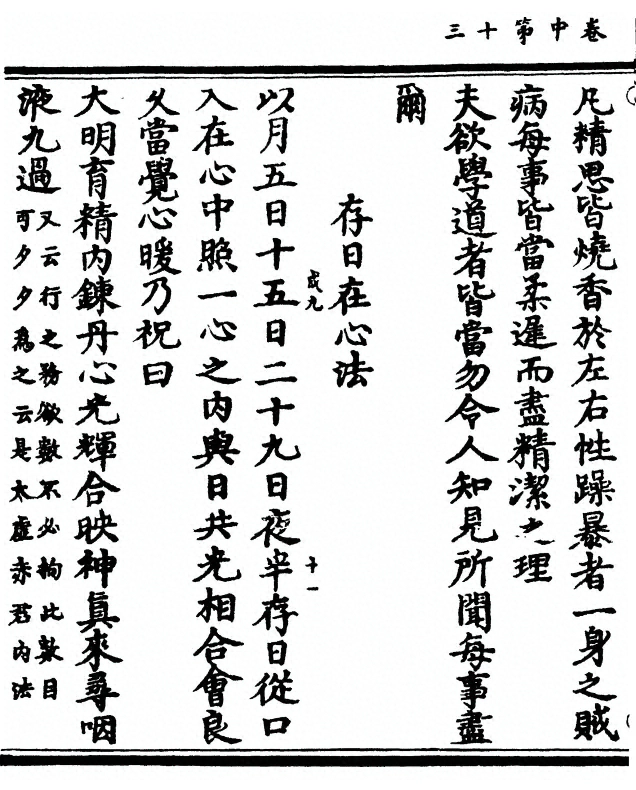 卷中第十三
凡精思皆燒香於左右性躁暴者一身之賊
病每事皆當柔遲而盡精潔之理
夫欲學道者皆當勿令人知見所聞每事盡
爾
存日在心法
以月五日十五日二十九日夜半存日從口
成九
十一
入在心中照一心之内與日共光相合會良
久當覺心暖乃祝曰
大明育精内鍊丹心光輝合映神真來尋咽
液九過
又云行之務欲數不必拘此數目
可夕夕為之云是太虛赤君内法